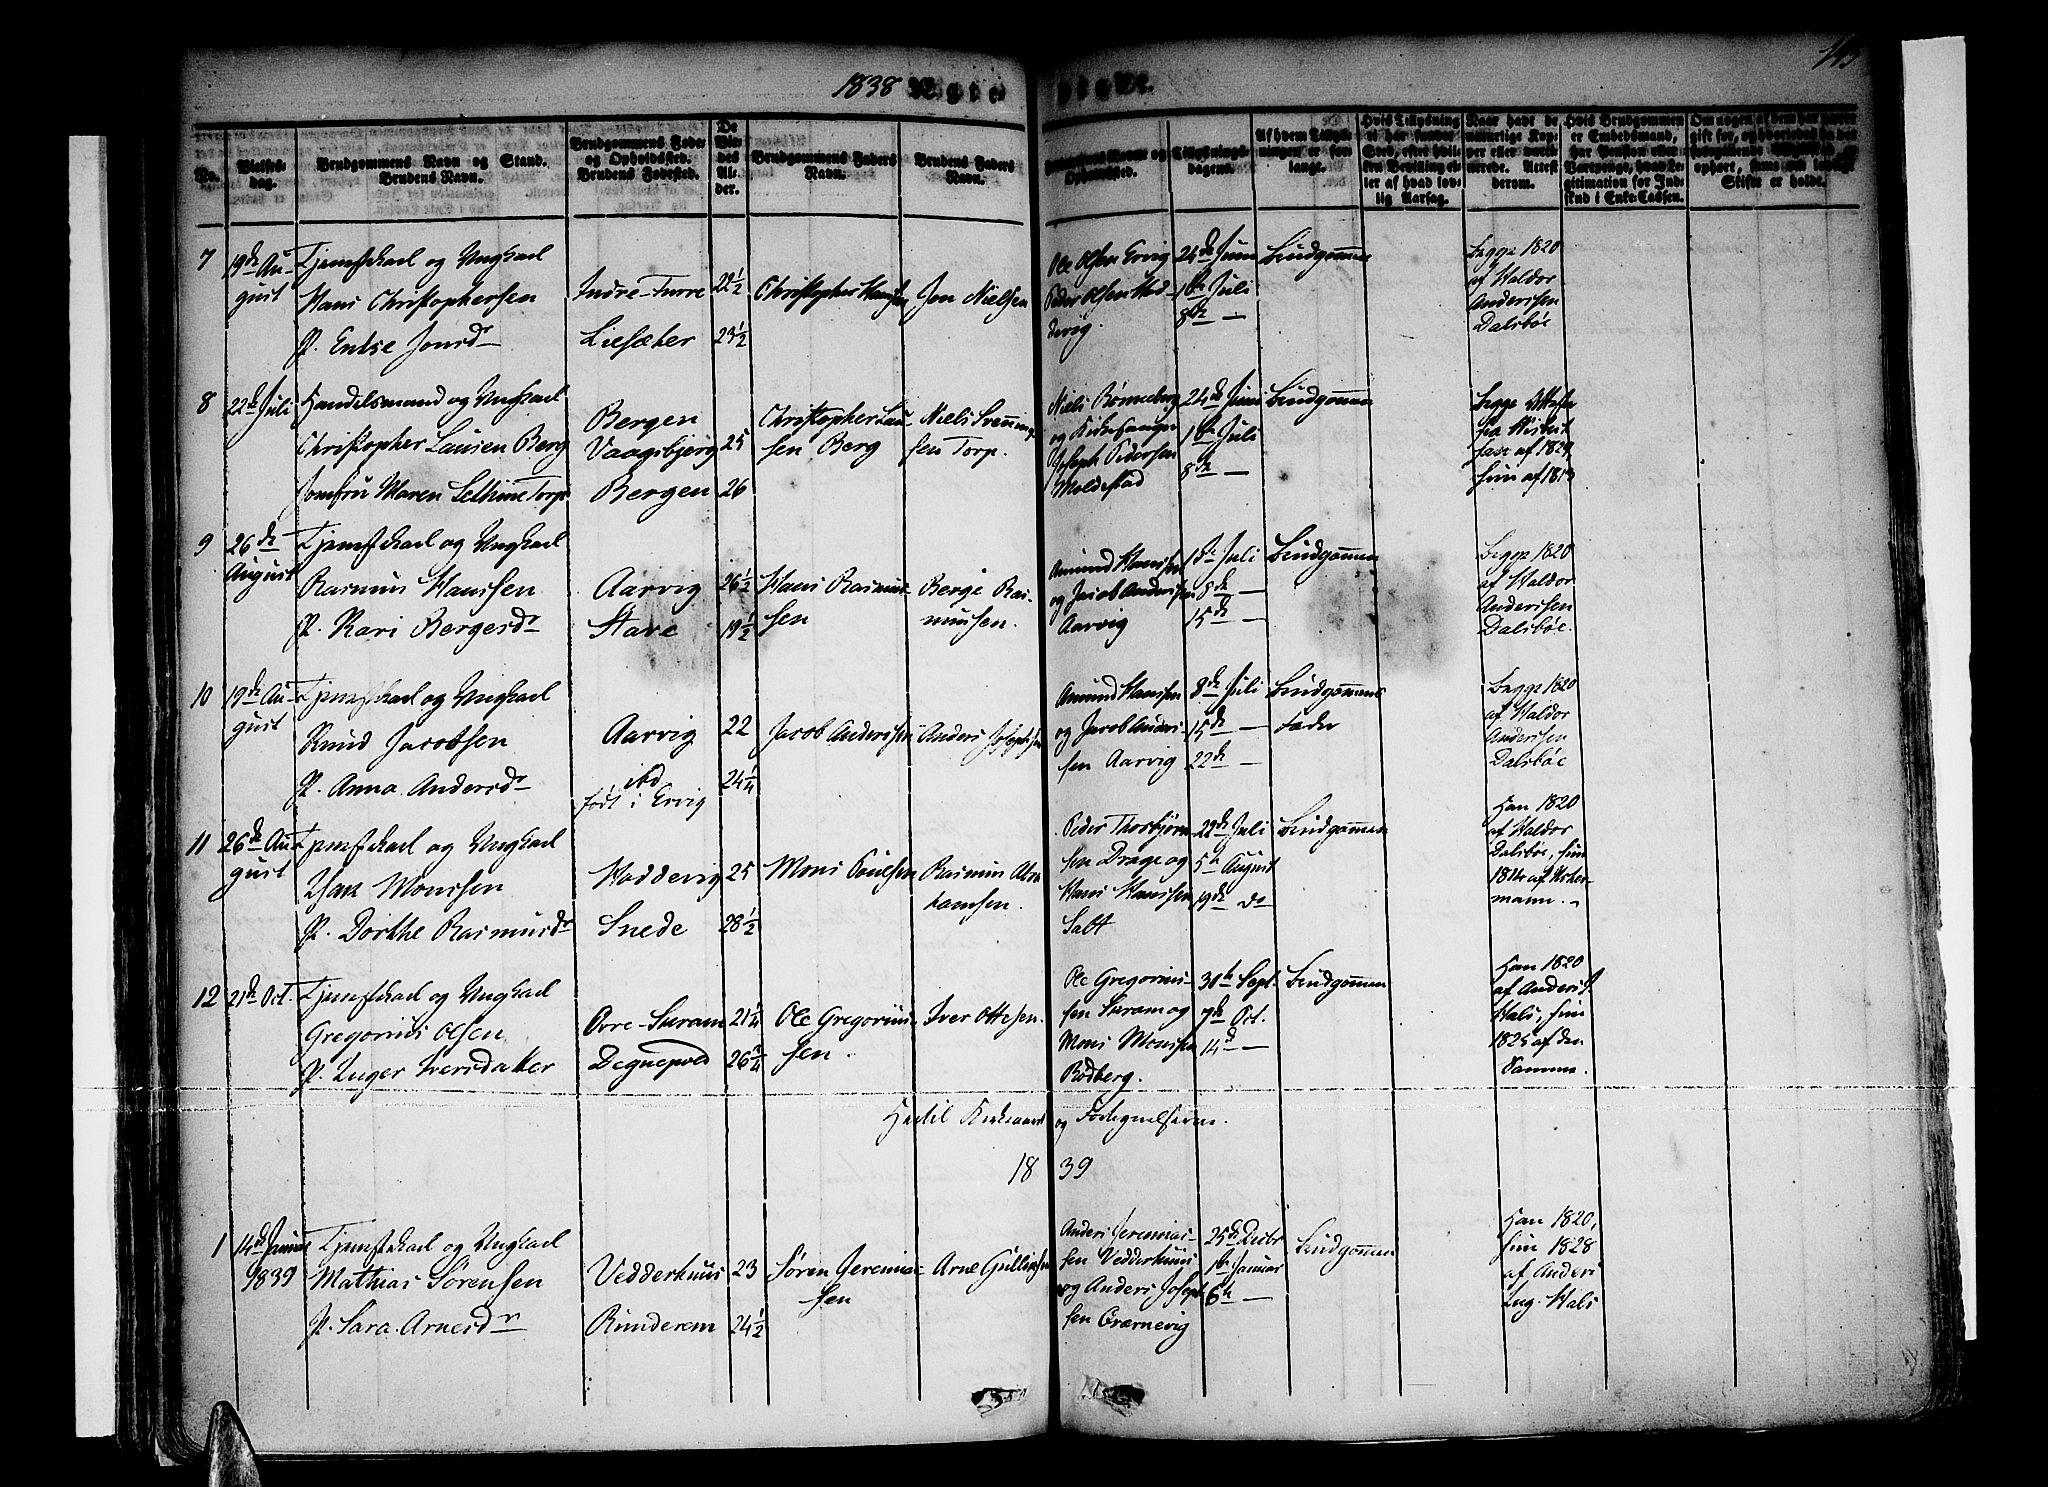 1838
No.
Vielses-
dag.
Brudgommens Navn og Stand.
Brudens Navn.
Brudgommens Føde-
og Opholdssted.
Brudens Fødested.
De
Vie-
des
Al-
der.
Brudgommens Faders
Navn.
Brudens Faders
Navn.
Tillysnings-
dagene.
Af hvem Tillys-
ningen er for-
langt.
Hvis Tillysning
ei har fundet
Sted, efter hvil-
ken Bevilling el-
ler af hvad lov-
lig Aarsag.
Naar havt de
naturlige Kop-
per eller vacci-
nerede. Attest
derom.
Hvis Brudgommen
er Embedsmand,
har Pension eller
Vartpenge, hvad Le-
gitimation for Ind-
skud i Enke-Cassen.
Skifte er holdt.
7
19de Au-
gust
Tjenestekarl og Ungkarl
Hans Christophersen
P. Jonsdr
Indre-Furre
Liesæter
22½
23½
Christopher Hansen
Jon Nielsen
Ole Olsen Ervig
Peder Olsen Hod-
devig.
24de Juni
1ste Juli
8de —
Brudgommen
Begge 1820
af Haldor
Anderssen
Dalsböe
8
22de Juli
Handelsmand og Ungkarl
Christopher Lausen Berg
Jomfru Maren Torp
Bergen
Vaagsbjerg
Bergen
25
26
Christopher Lau-
sen Berg
Niels Svenning-
sen Torp.
Niels Rønneberg
og Kirkesanger
Joseph Pedersen
Moldestad
24de Juni
1ste Juli
8de —
Brudgommen
Begge
af 1829
af 1813
9
26de
August
Tjenestekarl og Ungkarl
Rasmus Hanssen
P. Kari Bergesdr
Aarvig
Stave
26½
19½
Hans Rasmus-
sen
Berge Ras-
mussen.
Amund Hanssen
og Jacob Anderssen
Aarvig
1ste Juli
8de —
15de —
Brudgommen
Begge 1820
af Haldor
Anderssen
Dalsböe.
10
19de Au-
gust
Tjenestekarl og Ungkarl
Knud Jacobsen
P. Anna Andersdr
Aarvig
ibd
født i Ervig
22
24¼
Jacob Anderssen
Anders Josephsen
Amund Hanssen
og Jacob Anders-
sen Aarvig
8de Juli
15de —
22de —
Brudgommens
Fader
Begge 1820
af Haldor
Anderssen
Dalsböe
11
26de Au-
gust
Tjenestekarl og Ungkarl
Isak Monssen
P. Dorthe Rasmusdr
Hoddevig
Snede
25
28½
Mons Poulsen
Rasmus Abra-
hamsen.
Peder Thorbjörn-
sen Drage og
Hans Hanssen
Salt
22de Juli
5te August
19de do
Brudgommen
Han 1820
af Haldor
Dalsböe, hun
1814 af
12
21de Oct.
Tjenestekarl og Ungkarl
Gregorius Olsen
P. Inger Iversdatter
Övre-Skram
Degnepold
21¼
26¾
Ole Gregorius-
sen.
Iver Ottesen.
Ole Gregorius-
sen Skram og
Mons Monssen
Rødberg.
Sept.
7de Oct.
14de —
Brudgommen
Han 1820
af Anders J.
Hals, hun
1825 af den
Samme.
1839
1
14de Januar
1839
Tjenestekarl og Ungkarl
Mathias Sørensen
P. Sara Arnesdr
Vedderhuus
Runderem
23
24½
Søren Jeremias-
sen
Arne Gulliksen
Anders Jeremias-
sen Vedderhuus
og Anders Joseph-
sen
25de Decbr
1ste Januar
6te —
Brudgommen
Han 1820,
hun 1828
af Anders
Hals